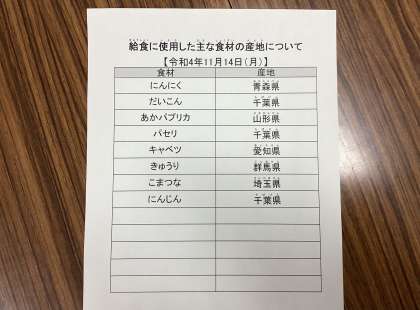 給食に使用した主な食材の産地について
【令和4年11月14日(月)】
食材 産地
にんにく 青森県
だいこん 千葉県
あかパプリカ 山形県
パセリ 千葉県
キャベツ 愛知県
きゅうり 群馬県
こまつな 埼玉県
にんじん 千葉県